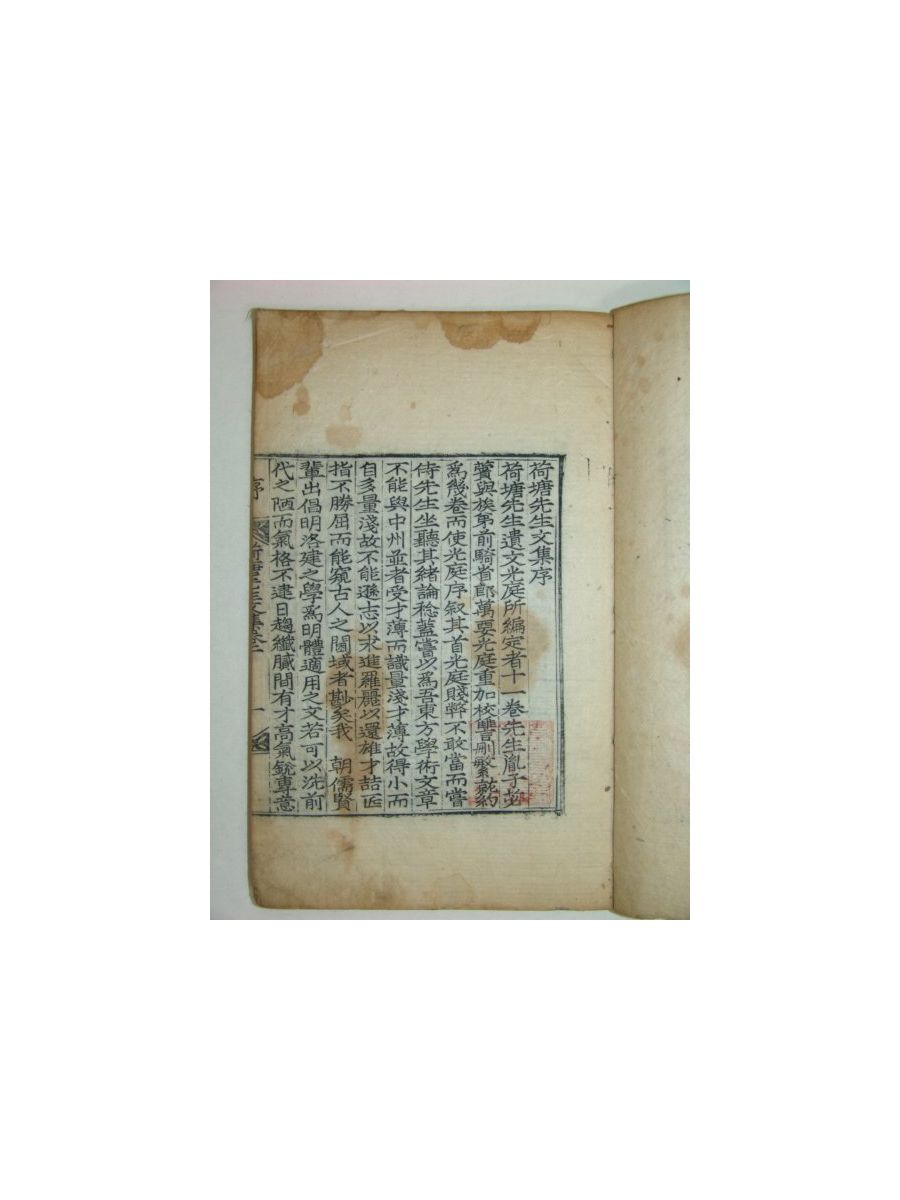 荷塘先生文集序
荷塘先生遺文光庭所編定者十一卷先生胤子必
簀與族弟前騎省郎萬要光庭重加校讐刪繁就約
爲幾卷而使光庭序叙其首光庭賤弊不敢當而嘗
侍先生坐聽其緖論稔蓋嘗以爲吾東方學術文章
不能與中州並者受才薄而識量淺才薄故得小而
自多量淺故不能遜志以求進羅麗以還雄才喆匠
指不勝屈而能窺古人之閫域者尠矣我 朝儒賢
輩出倡明洛建之學爲明體適用之文若可以洗前
代之陋而氣格不逮日趨纖膩間有才高氣銳專意
序
一